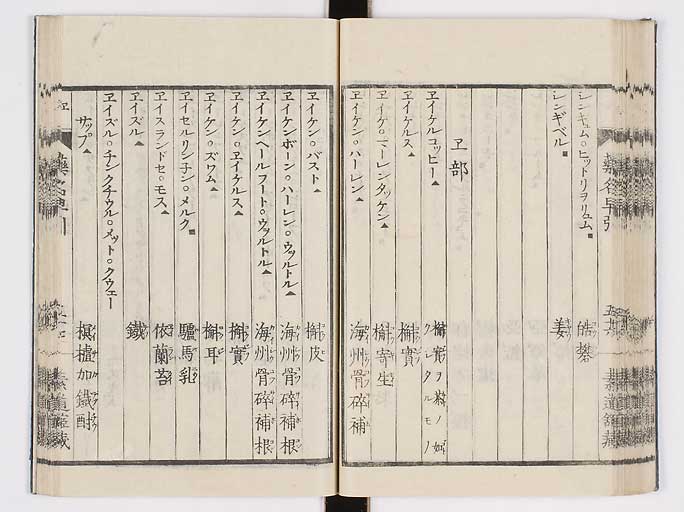 シンキュム○ヒットリヲリュム■ 皓礬
シンギベル■ 姜
ヱ部
ヱイケルコッピー▲ 槲實ヲ粉ノ如クシタルモノ
ヱイケルス▲ 槲實
ヱイケ○ニーレンタッケン▲ 槲寄生
ヱイケン○ハーレン▲ 海州骨碎補
ヱイケン○バスト▲ 槲皮
ヱイケンボーン○ハーレン○ウヲルトル▲ 海州骨碎補根
ヱイケンヘールフート○ウヲルトル▲ 海州骨碎補根
ヱイケン○ヱイケルス▲ 槲實
ヱイケン○ズワム▲ 槲耳
ヱイセルリン子ン○メルク■ 驢馬乳
ヱイスランドセ○モス▲ 依蘭苔
ヱイズル▲ 鐵
ヱイズル○チンクチウル○メット○クウェー
サップ▲ 榠樝加鐵酎
藥名早引